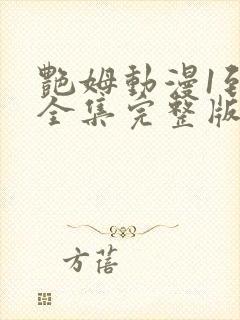 艷姆動漫1到
全集完整版
方蓓